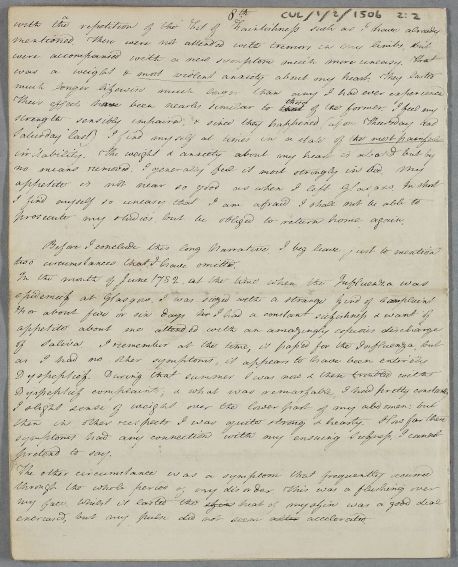 8th CUL/1/2/1506 2:2
with the repetition of the fit of Faintishness such as I have already
mentioned. These were not attended with tremor in my limbs, but
were accompanied with a new symptom much more uneasy. That
was a weight & most violent anxiety about my heart. They lasted
much longer than any I had ever experience
Their effects have been nearly similar to those of the former. I feel my
strength sensibly impaired & since they happened upon Thursday and
Saturday last I find myself at times in a state of the most
irritability. The weight & anxiety about my heart is abated but by
no means removed. I generally feel it most strongly in bed. My
appetite is not near so good as when I left Glasgow. In short
I find myself so uneasy that I am afraid I shall not be able to
prosecute my studies but be obliged to return home again.
Before I conclude this long Narrative I beg leave just to mention
two circumstances that I have omitted.
In the month of June 1782 at the time when the Influenza was
epidemic at Glasgow, I was seized with a strange kind of Complaint
For about five or six days I had a constant & want of
appetite about me attended with an amazingly copious discharge
of Saliva I remember at the time, it passed for the Influenza, but
as I had no other symptoms, it appears to have been entirely
Dyspeptic. During that summer I was now & then troubled with
Dyspeptic complaints, & what was remarkable, I had pretty constantly
a slight sense of weight over the lower part of my abdomen: but
then in other respects I was quite strong & hearty. How far these
symptoms had any connection with my ensuing I cannot
pretend to say.
The other circumstance was a symptom that frequently occurred
through the whole period of my disorder This was a flushing over
my face. Whilst it lasted the heat of my skin was a good deal
encreased, but my pulse did not seem accelerated